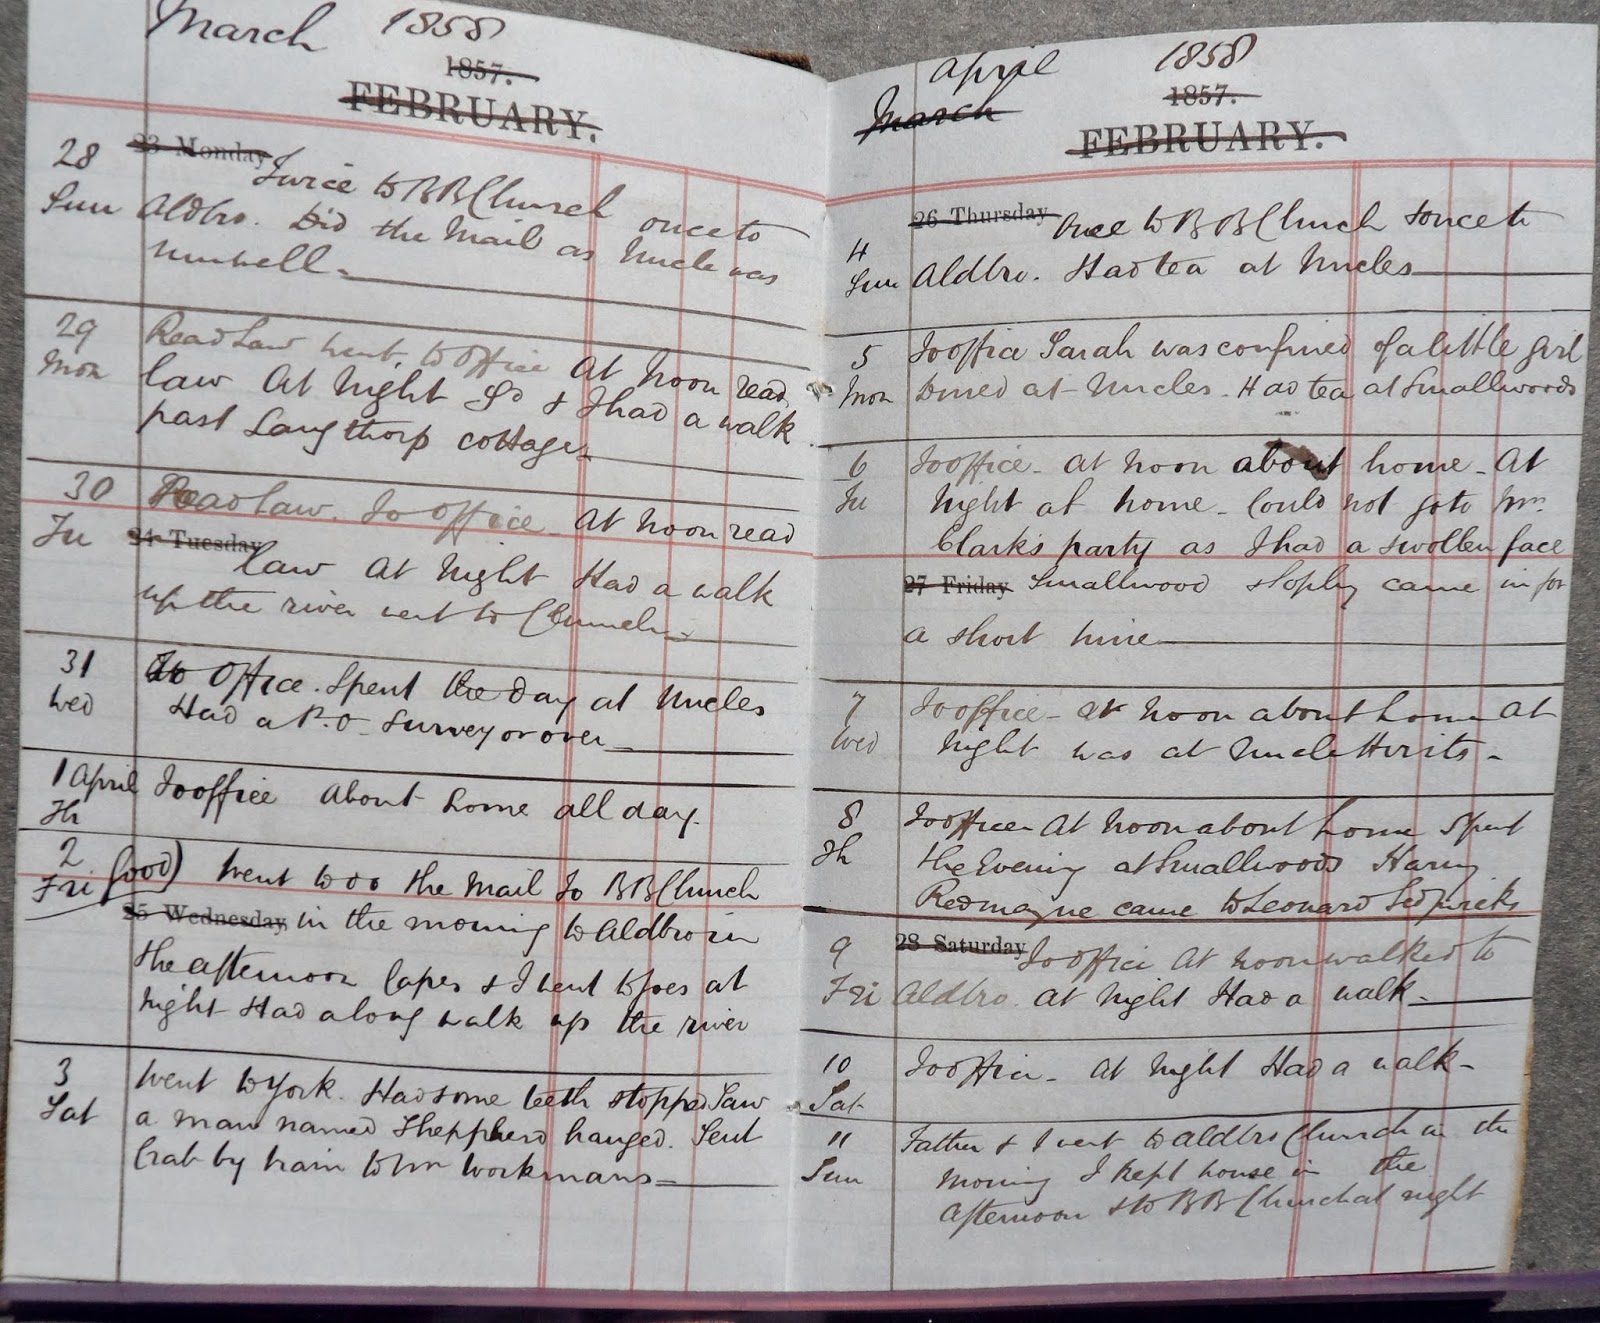 March 1858
1857.
FEBRUARY.
28 23 Monday Twice to BB Church once to
Sun Aldbro. Did the Mail as Uncle was
unwell
29 Read Law went to Office At Noon read
Mon Law At Night Jo & I had a walk
past Langthorp cottage
30 Read Law. To Office At Noon read
Tu 24 Tuesday
Law At Night Had a walk
up the river went to
31 To Office. Spent the Day at Uncles
Wed Had a P.O. Survey or over
1 April To office About home all day.
Th
2 Good) Went to do the Mail To BB Church
Fri
25 Wednesday in the morning to Aldbro in
the afternoon Capes & I went to Joes at
Night Had a long walk up the river
3 Went to York. Had some teeth stopped Saw
Sat a man named Sheppherd hanged. Sent
Crab by train to Wm Workmans
April 1858
March 1857.
FEBRUARY.
26 Thursday Once to BB Church & once to
4
Sun Aldbro. Had tea at Uncles
5 To office Sarah was confined of a little girl
Mon Dined at Uncles. Had tea at Smallwoods
6 To office - At Noon about home - At
Tu Night at home - Could not go to Mrs.
Clark's party as I had a swollen face
27 Friday Smallwood came in for
a short time
7 To office - At Noon about home At
Wed Night was at Uncle
8 To office At Noon about home Spent
Th the Evening at Smallwoods Harry
Redmayne came to Leonard Sedgwicks
9 28 Saturday To Office At Noon walked to
Fri Aldbro. At Night Had a walk -
10 To office - At Night Had a walk -
Sat
11 Father & I went to Aldbro Church in the
Sun Morning I kept house in the
Afternoon & to BB Church at night